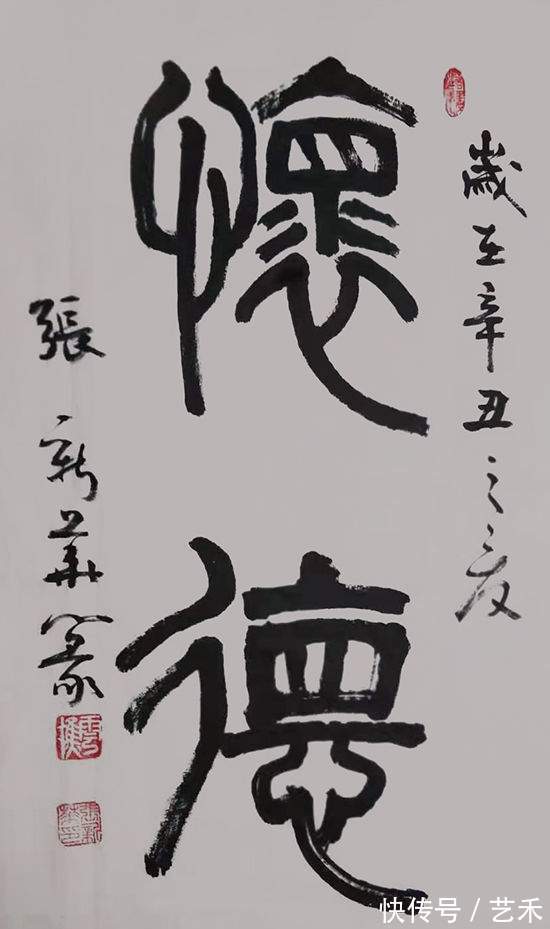 歲在辛丑之夏
懷德
張新華篆
快传号 / 艺禾